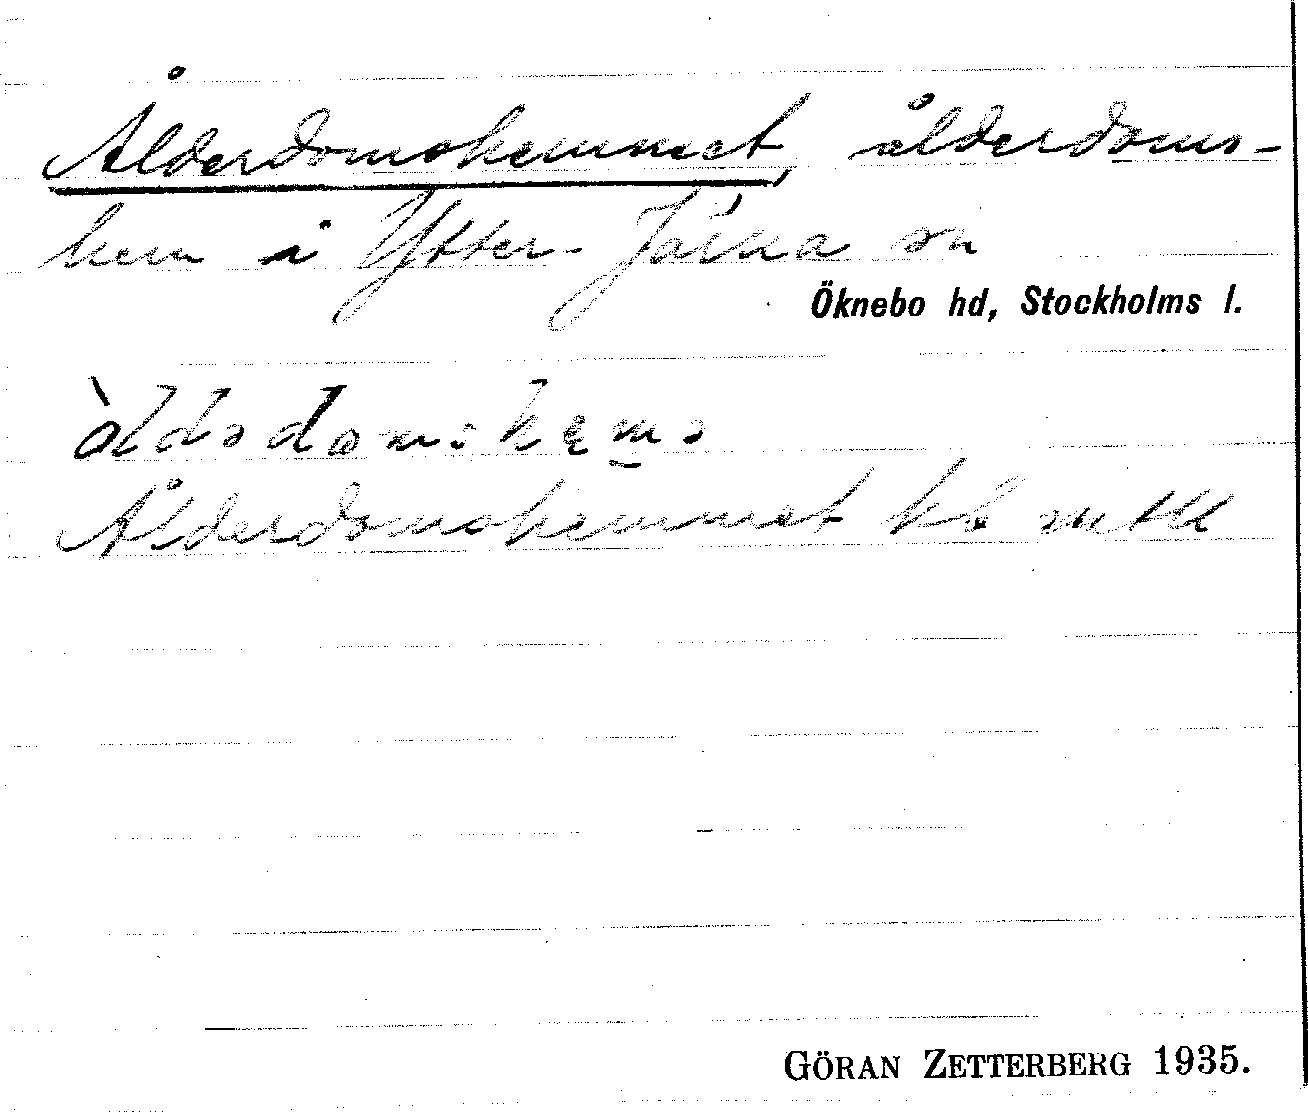 Ålderdomshemmet, ålderdoms-
hem i Ytter-Järna sn
Öknebo hd, Stockholms l.
Ålderdomshemmet
GÖRAN ZETTERBERG 1935.